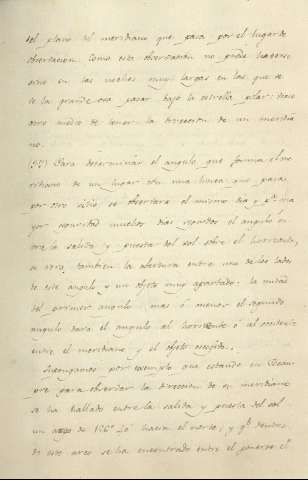 del plano del meridiano que pasa por el lugar de
observacion. Como esta observacion no puede hacerse
sino en las noches muy largas en las que se
la grande osa pasar bajo la estrella polar
otro medio de tener la direccion de un meridia
no.
Para determinar el angulo que forma el me
ridiano de un lugar con una linea que pasa
por otro sitio, se observara el mismo dia y pª ma
yor seguridad muchos dias seguidos el angulo en
tre la salida y puesta del sol sobre el horizonte,
se tambien la abertura entre uno de los lados
de este angulo y un objeto muy apartado. La mitad
del primer angulo, mas ó menos el segundo
angulo dara el angulo al horizonte ó al
entre el meridiano y el objeto escojido.
Supongamos por exemplo que estando en
para observar la direccion de su meridiano
se ha hallado entre la salida y puesta del sol
un de hacia el norte, y qe dentro
de este arco se ha encontrado entre el el